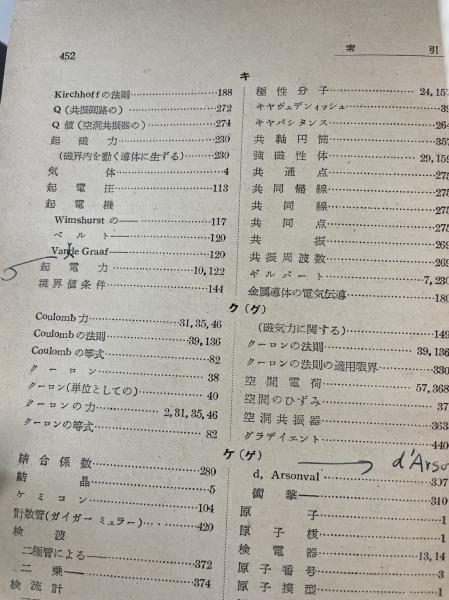 452
索引
キ
Kirchhoffの法則 188
Q(共振回路の) 272
Q値(空洞共振器の) 274
起磁力 230
(磁界内を動く導体に生ずる) 230
気体 4
起電圧 113
起電機
Wimshurst の— 117
ベルト— 120
Van de Graaf— 120
起電力 10,122
境界値条件 144
極性分子 24,157
キャヴェデンィッシュ 39
キャパシタンス 264
共軸円筒 357
強磁性体 29,159
共通点 275
共同帰線 275
共同線 275
共同点 275
共振 269
共振周波数 269
ギルバート 7,230
金属導体の電気伝導 180
ク(グ)
Coulomb力 31,35,46
Coulombの法則 39,136
Coulombの等式 82
クーロン 38
クーロン(単位としての) 40
クーロンの力 2,31,35,46
クーロンの等式 82
(磁気力に関する) 149
クーロンの法則 39,136
クーロンの法則の適用限界 330
空間電荷 57,368
空間のひずみ 37
空洞共振器 363
グラデイエント 440
ケ(ゲ)
結合係数 280
結晶 5
ケミコン 104
計数管(ガイガー ミュラー) 420
検波
二極管による— 372
二乗— 374
検流計
d'Arso
d, Arsonval 307
衝撃— 310
原子 1
原子核 1
検電器 13,14
原子番号 3
原子模型 1